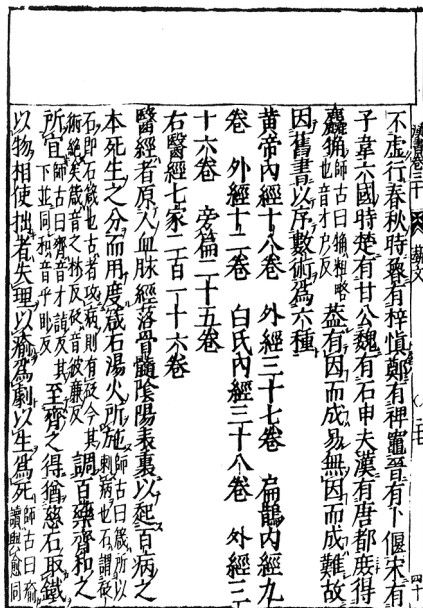 漢書卷三十 藝文 四十
不虛行春秋時魯有梓慎鄭有裨竈晉有卜偃宋有
子韋六國時楚有甘公魏有石申夫漢有唐都庶得
麤觕師古曰觕粗略也音才戶反蓋有因而成易無因而成難故
因舊書以序數術爲六種
黃帝內經十八卷 外經三十七卷 扁鵲內經九
卷 外經十二卷 白氏內經三十八卷 外經三
十六卷 旁篇二十五卷
右醫經七家二百一十六卷
醫經者原人血脉經落骨髓陰陽表裏以起百病之
本死生之分而用度箴石湯火所施師古曰箴所以刺病也石謂砭石即石箴也古者攻病則有砭今其術絕矣箴音之林反砭音彼廉反調百藥齊和之
所宜師古曰齊音才詣反其下並同和音乎臥反至齊之得猶慈石取鐵
以物相使拙者失理以瘉爲劇以生爲死師古曰瘉讀與愈同